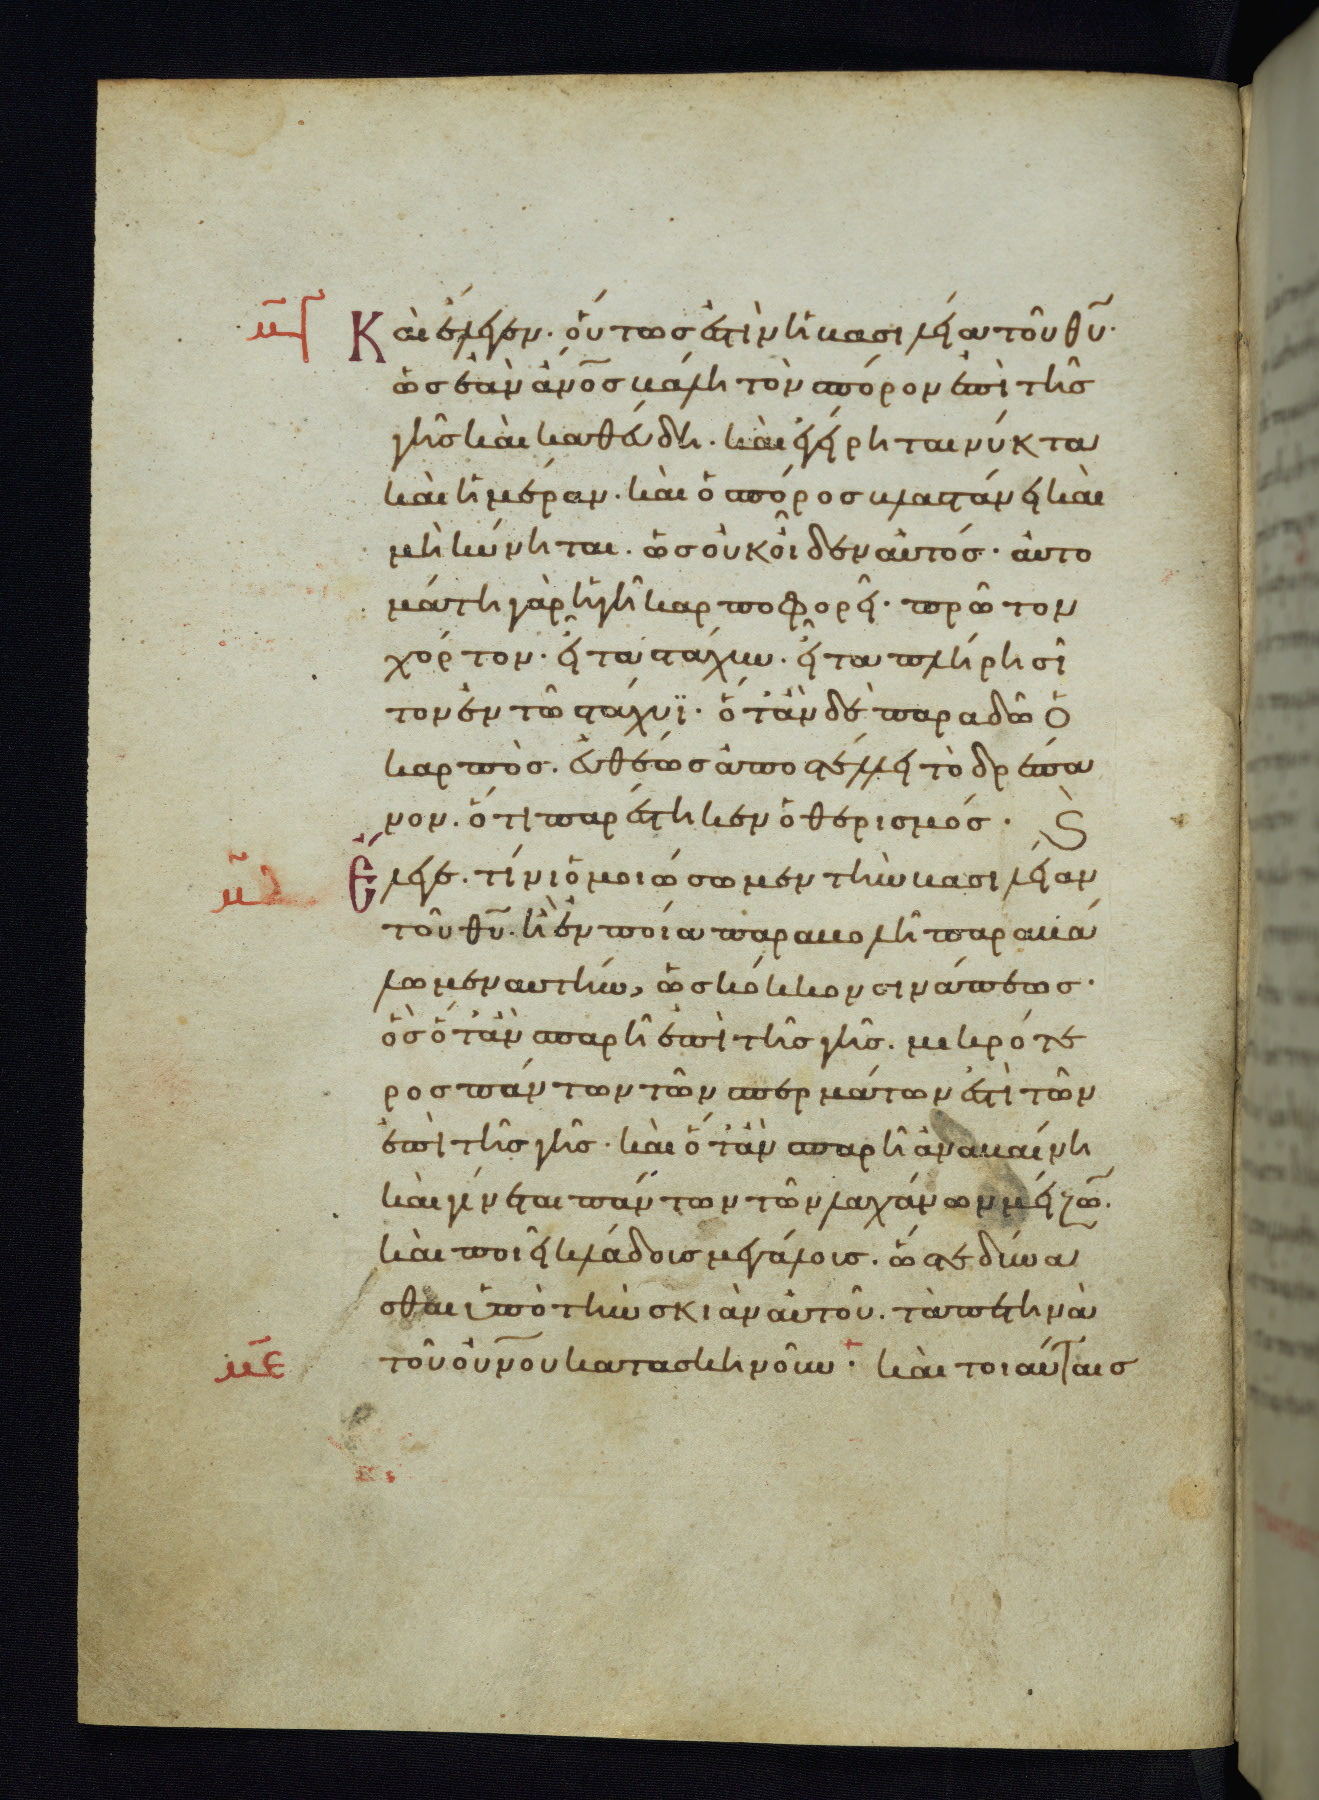 μ̅γ Καὶ ἔλεγεν· οὕτως ἐστὶν ἡ βασιλεία τοῦ θυ̅·
ὡς ἐὰν ἀνο̅ς βάλη τὸν σπόρον ἐπὶ τῆς
γῆς καὶ καθεύδη· καὶ ἐγείρηται νύκτα
καὶ ἡμέραν· καὶ ὁ σπόρος βλαστάνει καὶ
μηκύνηται· ὡς οὐκ οἶδεν αὐτός· αὐτο
μάτη γὰρ ἡ γῆ καρποφορεῖ· πρῶτον
χόρτον· εἶτα στάχυν· εἶτα πλήρη σῖ
τον ἐν τῶ στάχυϊ· ὅτἂν δὲ παραδῶ ὁ
καρπὸς· εὐθέως ἀποστέλλει τὸ δρέπα
νον· ὅτι παρέστηκεν ὁ θερισμός·
μ̅δ Ἔλεγε· τίνι ὁμοιώσωμεν τὴν βασιλείαν
τοῦ θυ̅· ἢ ἐν ποία παραβολῆ παραβά
λωμεν αυτήν, ὡς κόκκον σινάπεως·
ὃς ὅτἂν σπαρῆ ἐπὶ τῆς γῆς· μικρότε
ρος πάντων τῶν σπερμάτων ἐστὶ τῶν
ἐπὶ τῆς γῆς· καὶ ὅτἂν σπαρῆ ἀναβαίνη
καὶ γίνεται πάντων τῶν λαχάνων μείζω̅·
καὶ ποιεῖ κλάδοις μεγάλοις· ὥστε δύνα
σθαι ὑπὸ τὴν σκιὰν αὐτοῦ· τὰ πετηνὰ
μ̅ε τοῦ οὐν̅ου κατασκηνοῦν· καὶ τοιαύταις